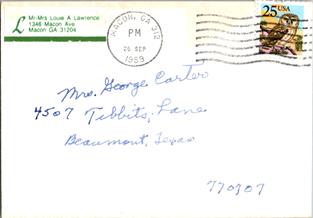 L
Mr-Mrs Louis A Lawrence
1346 Macon Ave
Macon GA 31204
MACON, GA 312
PM
26 SEP
1989
25 USA
Mrs. George Carter
4507 Tibbits Lane
Beaumont, Texas
770707